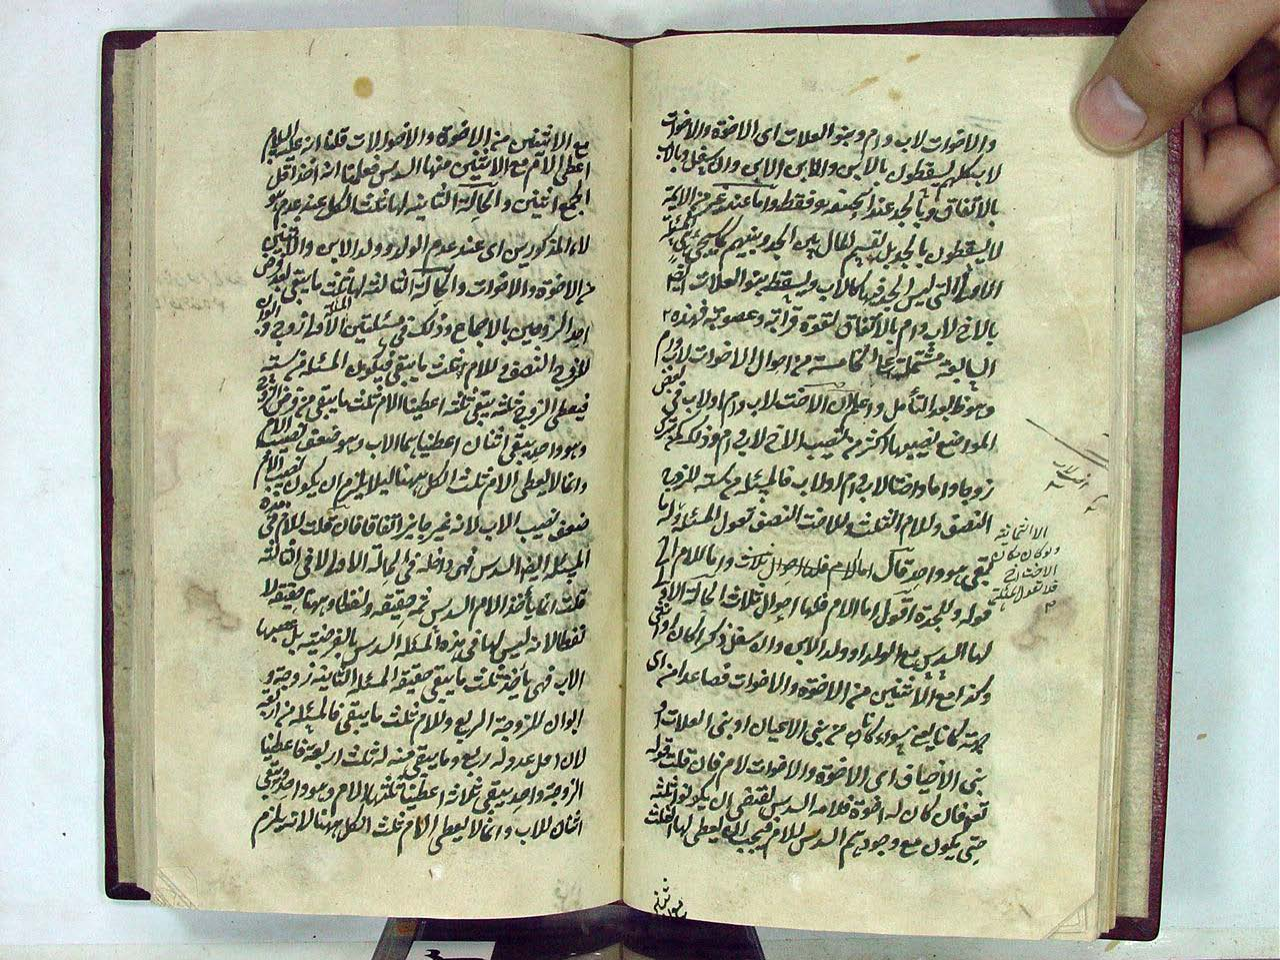 والاخوات لاب وام وبنو العلات اى الاخوة والاخوات
لاب كلهم يسقطون بالابن وابن الابن وان سفل وبالاب
بالاتفاق وبالجد عند ابى حنيفة فقط واما عند غيره من الائمة
لا يسقطون بالجد بل تقسيم المال بين الجد وبينهم كما سيجئ
الاولى التى ليس الجد فيها كالاب ويسقط بنو العلات ايضا
بالاخ لاب وام بالاتفاق لقوة قرابته وعصوبته فهذه
السابعة مشتملة على الخامسة من احوال الاخوات لاب وام
وهو ظ بعد التأمل واعلم ان الاخت لاب وام او لاب فى بعض
المواضع نصيبها اكثر من نصيب الاخ لاب وام وذلك كمن ترك
زوجا واما واختا لاب وام او لاب فالمسئلة من ستة للزوج
النصف وللام الثلث وللاخت النصف تعول المسئلة
بقى هو واحد قال اما للام فلها احوال ثلاث واما للام الخ
قوله وللجدة اقول اما الام فلها احوال ثلاث الحالة الاولى
لها السدس مع الولد او ولد الابن وان سفل ذكرا كان او انثى
وكذا مع الاثنين من الاخوة والاخوات فصاعدا من اى
جهة كانا يعنى سواء كانا من بنى الاعيان او بنى العلات او
بنى الاخياف اى الاخوة والاخوات لام فان قلت قوله
تع فان كان له اخوة فلامه السدس يقتضى ان يكونوا ثلثة
حتى يكون مع وجودهم السدس للام فيجب ان يعطى لها الثلث
الا انثى
ولو كان مكان
الاخت اخ
فلا تعول المسئلة
مع الاثنين من الاخوة والاخوات قلنا انه عليه السلام
اعطى الام مع الاثنين منها السدس فعلمنا انه اخذ اقل
الجمع اثنين والحالة الثانية لها ثلث الكل عند عدم هؤ
لاء المذكورين اى عند عدم الولد وولد الابن والاثنين
من الاخوة والاخوات والحالة الثالثة لها ثلث ما يبقى بعد فرض
احد الزوجين بالاجماع وذلك فى مسئلتين الاولى زوج وابوان
للزوج النصف وللام ثلث ما يبقى فيكون المسئلة من ستة
فيعطى الزوج ثلثة يبقى ثلثة اعطينا الام ثلث ما يبقى من فرض الزوج
وهو واحد يبقى اثنان اعطيناهما الاب وهو ضعف نصيب الام
وانما لا يعطى الام ثلث الكل ههنا لئلا يلزم ان يكون نصيب الام
ضعف نصيب الاب لانه غير جايز اتفاقا فان قلت للام فى هذه
المسئلة ايضا السدس فهى داخلة فى الحالة الاولى لا فى الثالثة
قلت انما يأخذ الام السدس ثمه حقيقة ولفظا وههنا حقيقة لا
لفظا لانه ليس لها فى هذه المسئلة السدس بالفرضية بل
الاب فهى يأخذ ثلث ما يبقى حقيقة المسئلة الثانية زوجة و
ابوان للزوجة الربع وللام ثلث ما يبقى فالمسئلة من اربعة
لان اقل عدد له ربع وما يبقى منه له ثلث اربعة فاعطينا
الزوجة واحد يبقى ثلاث اعطينا ثلثها الام وهو واحد ويبقى
اثنان للاب وانما لا يعطى الام ثلث الكل ههنا لانه يلزم